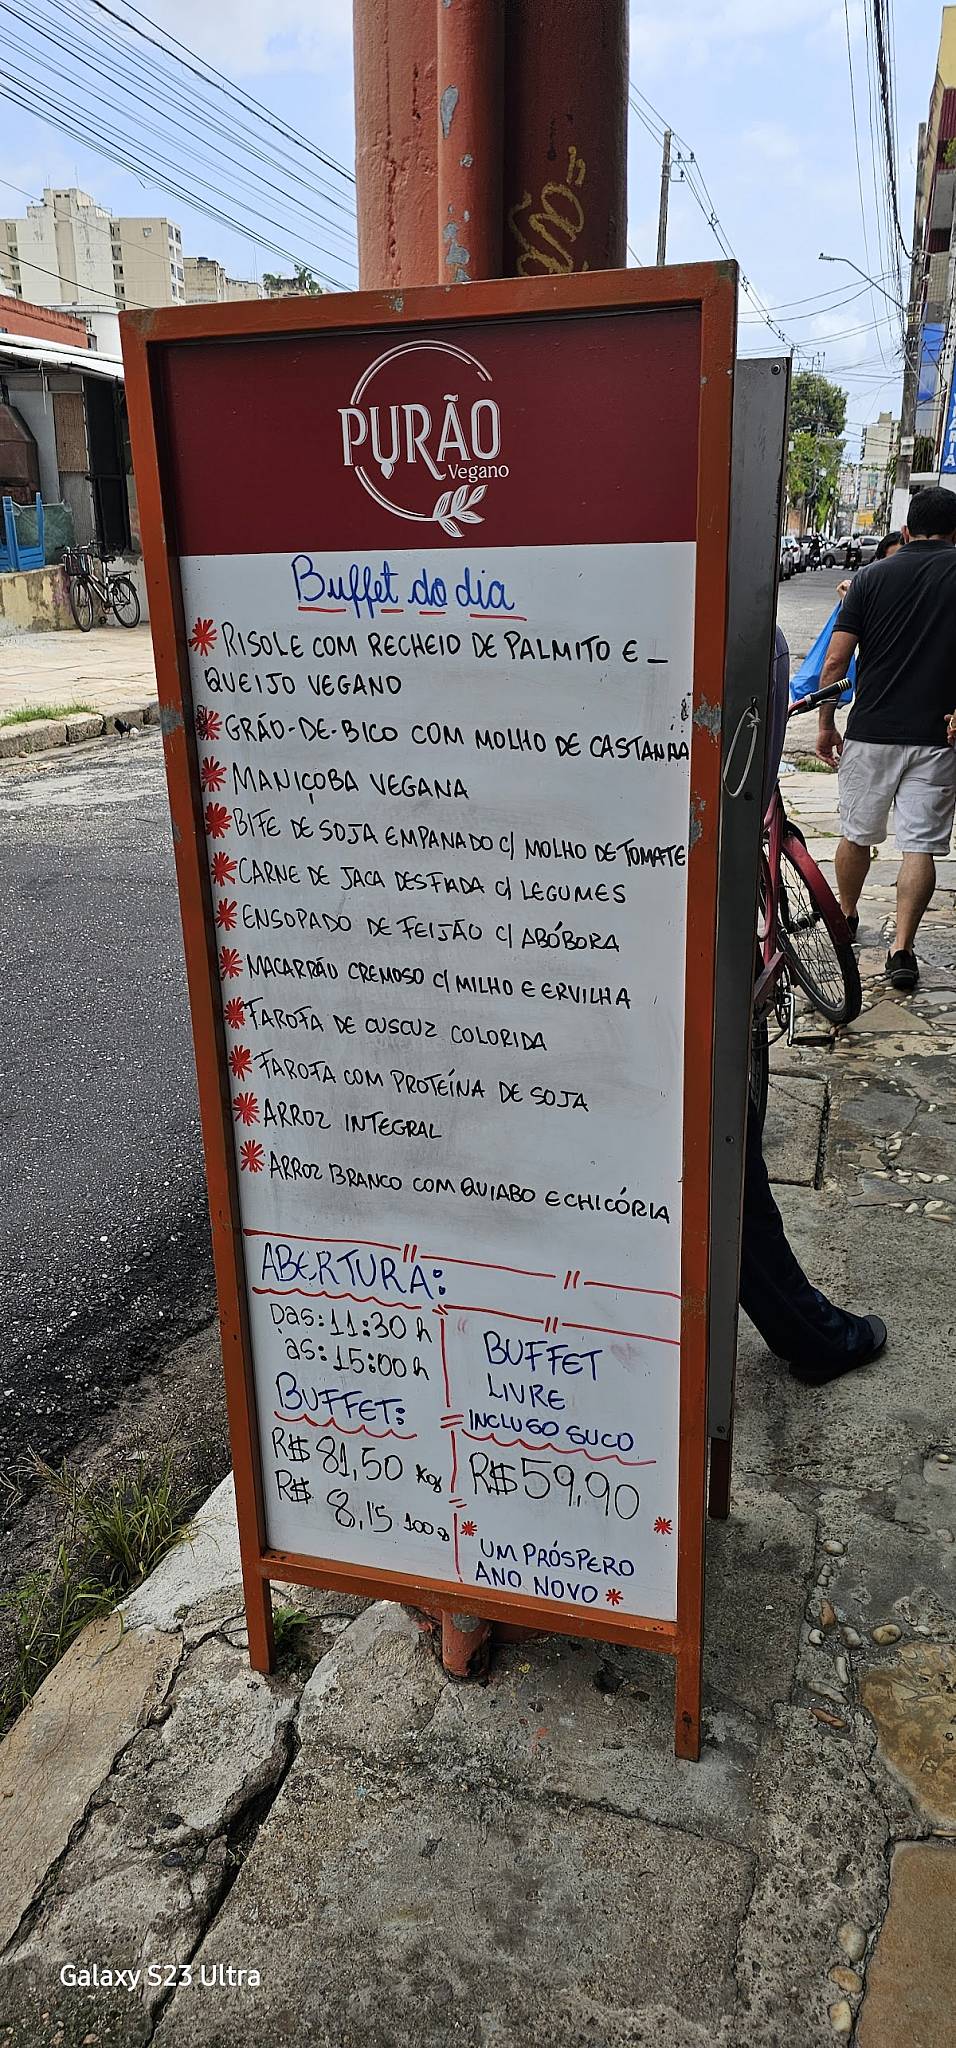 PURÃO
Vegano
Buffet do dia
RISOLE COM RECHEIO DE PALMITO E _
QUEIJO VEGANO
GRÃO-DE-BICO COM MOLHO DE CASTANHA
MANIÇOBA VEGANA
BIFE DE SOJA EMPANADO C/ MOLHO DE TOMATE
CARNE DE JACA DESFIADA C/ LEGUMES
ENSOPADO DE FEIJÃO C/ ABÓBORA
MACARRÃO CREMOSO C/ MILHO E ERVILHA
FAROFA DE CUSCUZ COLORIDA
FAROFA COM PROTEÍNA DE SOJA
ARROZ INTEGRAL
ARROZ BRANCO COM QUIABO E CHICÓRIA
ABERTURA:
Das: 11:30 h
às: 15:00 h
BUFFET:
R$ 81,50 Kg
R$ 8,15 100g
BUFFET
LIVRE
INCLUSO SUCO
R$ 59,90
UM PRÓSPERO
ANO NOVO
Galaxy S23 Ultra